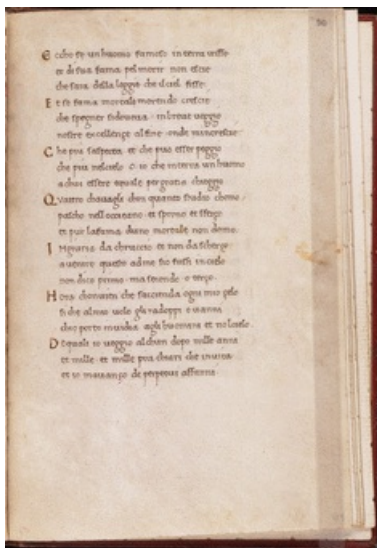 36
E cche se un huomo famoso in terra visse
et di sua fama pel morir non escie
che sara della leggie che il ciel fisse
E t se fama mortale morendo crescie
che spegner si doveva in breve veggio
nostre excellenze al fine onde mincrescie
C he piu saspecta et che puo esser peggio
che piu nel cielo o io che interra un huomo
a chui essere equale per gratia cheggio
Q Vattro chavagli chon quanto studio chomo
pascho nell occeano et sprono et sferzo
et pur la fama duno mortale non domo
I Ngiuria da chruccio et non da scherzo
avenire questo ad me sio fussi in cielo
non dico primo ma secondo o terzo
H ora chonvien che saccenda ogni mio zelo
si che al mio volo gli radoppi i vanni
chio porto invidia agli huomini et nol cielo
D Equali io veggio alchun dopo mille anni
et mille et mille piu chiari che in vita
et io mavanzo de perpetui affanni